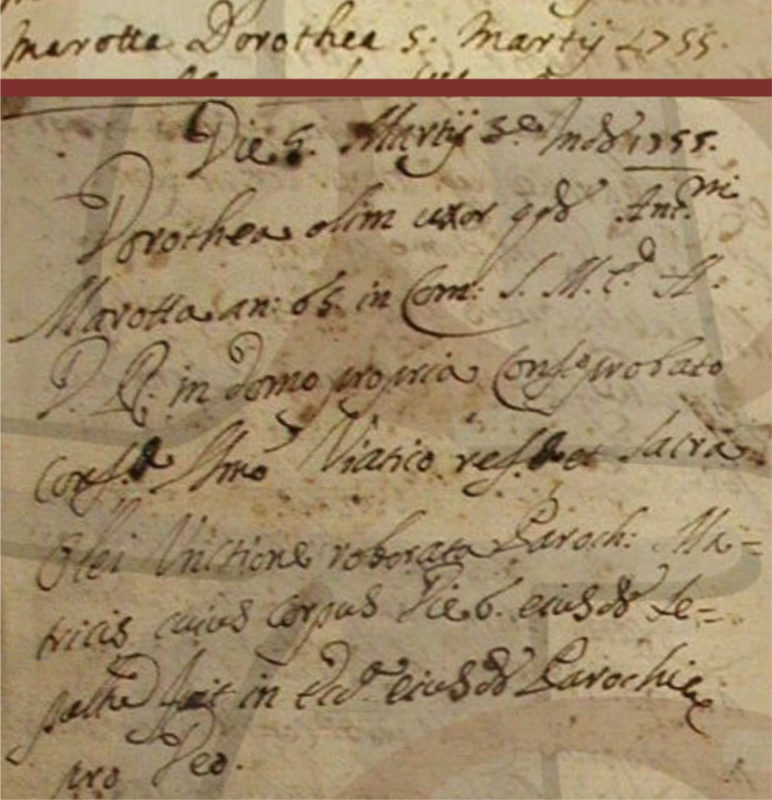 Marotta Dorothea 5. Martij 1755.
Die 5. Martij 3.e Ind. 1755.
Dorothea olim uxor qd. Ant.ni
Marotta an: 65. in Com: S. M. E. A.
D. R. in domo propria Conf.o probato
conf.a SSmo Viatico ref.a et Sacra
Olei Unctione roborata Paroch: Ma=
tricis cuius corpus Die 6. eiusd. Se=
pult. fuit in Ecc.a eiusd. Parochiae
pro Deo.